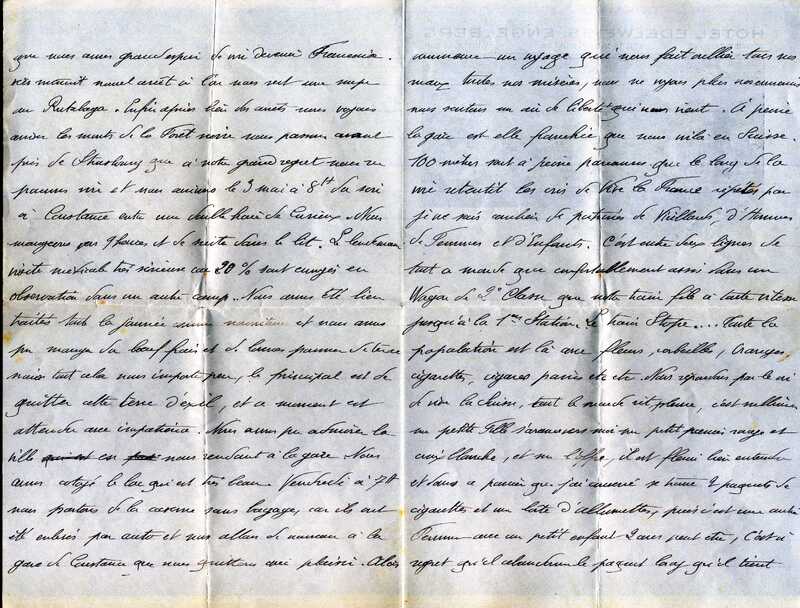 que nous avons grand espoir de devenir Français.
nouvel arrêt à l'on nous sert une soupe
au Rutabaga. Enfin après bien des arrêts nous voyons
les monts de la Forêt noire nous passons
près de Strasbourg que à notre grand regret nous ne
pouvons voir et nous arrivons le 3 mai à 8h du soir
à Constance entre une double haie de curieux. Nous
mangeons par et de suite dans le lit. Le lendemain
visite médicale très sérieuse car 20% sont envoyés en
observation dans un autre camp. Nous avons été bien
traités toute la journée et nous avons
pu manger du bœuf frais et de bonnes pommes de terre
mais tout cela nous importe peu, le principal est de
quitter cette terre d'exil, et ce moment est
attendu avec impatience. Nous avons pu admirer la
ville en nous rendant à la gare. Nous
avons cotoyé le lac qui est très beau. Vendredi à 7h
nous partons de la caserne sans bagages, car ils ont
été enlevés par auto et nous allons de nouveau à la
gare de Constance que nous quittons avec plaisir. Alors
HOTEL EDELWEISS ENGELBERG
commence un voyage qui nous fait oublier tous nos
maux toutes nos misères, nous ne voyons plus nos
nous sentons un air de liberté qui nous vient. A peine
la gare est elle franchie que nous voilà en Suisse.
100 mètres sont à peine parcourus que le long de la
voie retentit les cris de Vive la France répétés par
je ne sais combien de poitrines de Vieillards, d'Hommes
de Femmes et d'Enfants. C'est entre deux lignes de
tout ce monde que confortablement assis dans un
Wagon de 2e Classe que notre train file à toute vitesse
jusqu'à la 1ère Station. Le train Stope.... Toute la
population est là avec fleurs, corbeilles, oranges,
cigarettes, cigares etc etc. Nous répondons par le cri
de vive la Suisse, tout le monde rit, pleure, c'est
une petite Fille s'avance vers moi un petit panier rouge et
croix blanche, et me l'offre, il est fleuri bien entendu
et dans ce panier que j'ai conservé se trouve 2 paquets de
cigarettes et une boîte d'allumettes, puis c'est une autre
Femme avec un petit enfant 2 ans peut être, c'est à
regret qu'il abandonne le paquet long qu'il tient